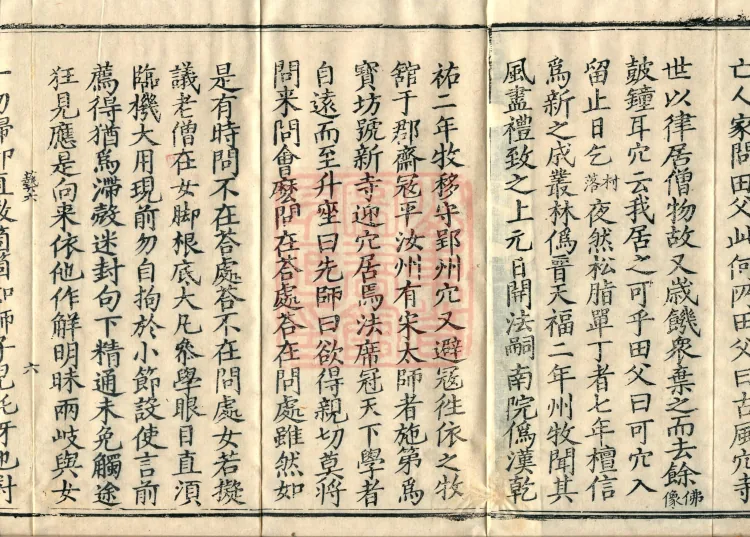 亡人家問田父此何所田父曰古風穴寺
世以律居僧物故又歲饑衆棄之而去餘佛像
鼓鐘耳穴云我居之可乎田父曰可穴入
留止日乞村落夜然松脂單丁者七年檀信
爲新之成叢林僞晉天福二年州牧聞其
風盡禮致之上元日開法嗣南院僞漢乾
祐二年牧移守郢州穴又避寇徃依之牧
館于郡齋寇平汝州有宋太師者施第爲
寶坊號新寺迎穴居焉法席冠天下學者
自遠而至升座曰先師曰欲得親切莫將
問来問會麽問在答處答在問處雖然如
是有時問不在答處答不在問處女若擬
議老僧在女脚根底大凡叅學眼目直湏
臨機大用現前勿自拘於小節設使言前
薦得猶爲滯殼迷封句下精通未免觸途
狂見應是向来依他作解明昧兩岐與女
一切掃却直教箇箇如師子兒吒呀地對
六